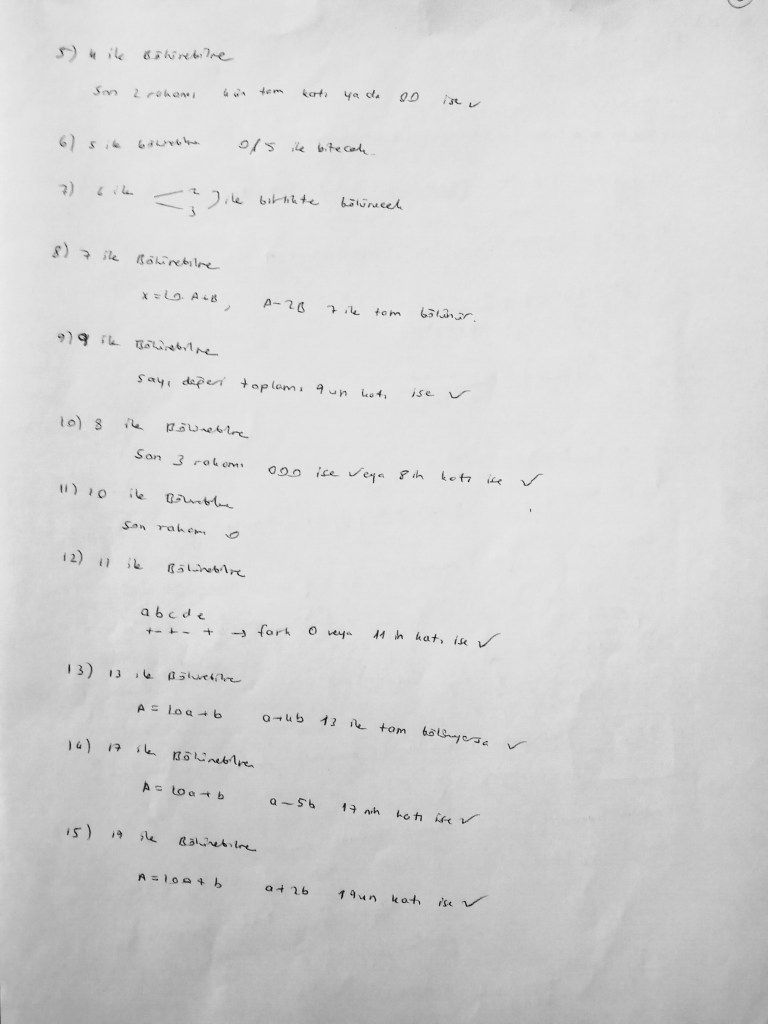 5) 4 ile Bölünebilme
Son 2 rakamı 4 ün tam katı ya da 00 ise ✓
6) 5 ile bölünebilme 0/5 ile bitecek.
7) 6 ile < 2 3 ) ile birlikte bölünecek
8) 7 ile Bölünebilme
x=10.A+B, A-2B 7 ile tam bölünür.
9) 9 ile Bölünebilme
Sayı değeri toplamı 9 un katı ise ✓
10) 8 ile Bölünebilme
Son 3 rakamı 000 ise veya 8 in katı ise ✓
11) 10 ile Bölünebilme
Son rakam 0
12) 11 ile Bölünebilme
abcde
+-+-+ → fark 0 veya 11 in katı ise ✓
13) 13 ile Bölünebilme
A = 10a+b a+4b 13 ile tam bölünüyorsa ✓
14) 17 ile Bölünebilme
A = 10a+b a-5b 17 nin katı ise ✓
15) 19 ile Bölünebilme
A=10a+b a+2b 19un katı ise ✓